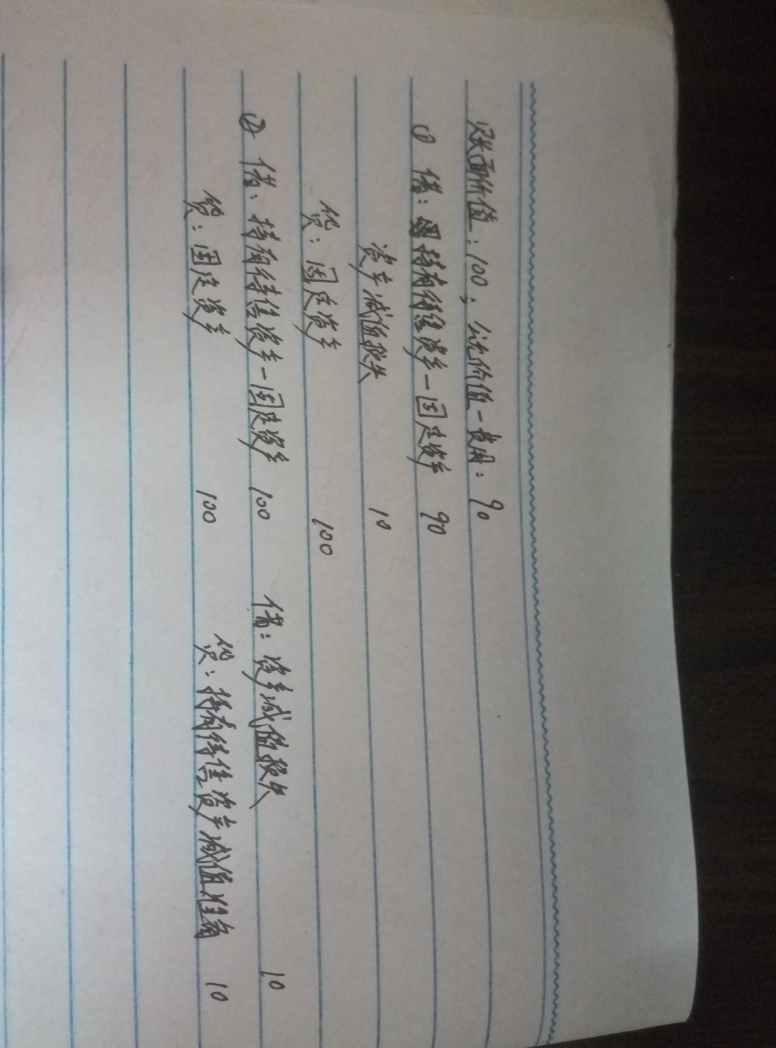 账面价值:100; 公允价值-费用:90
① 借:持有待售资产-固定资产 90
资产减值损失 10
贷:固定资产 100
② 借:持有待售资产-固定资产 100 借:资产减值损失 10
贷:固定资产 100 贷:持有待售资产减值准备 10